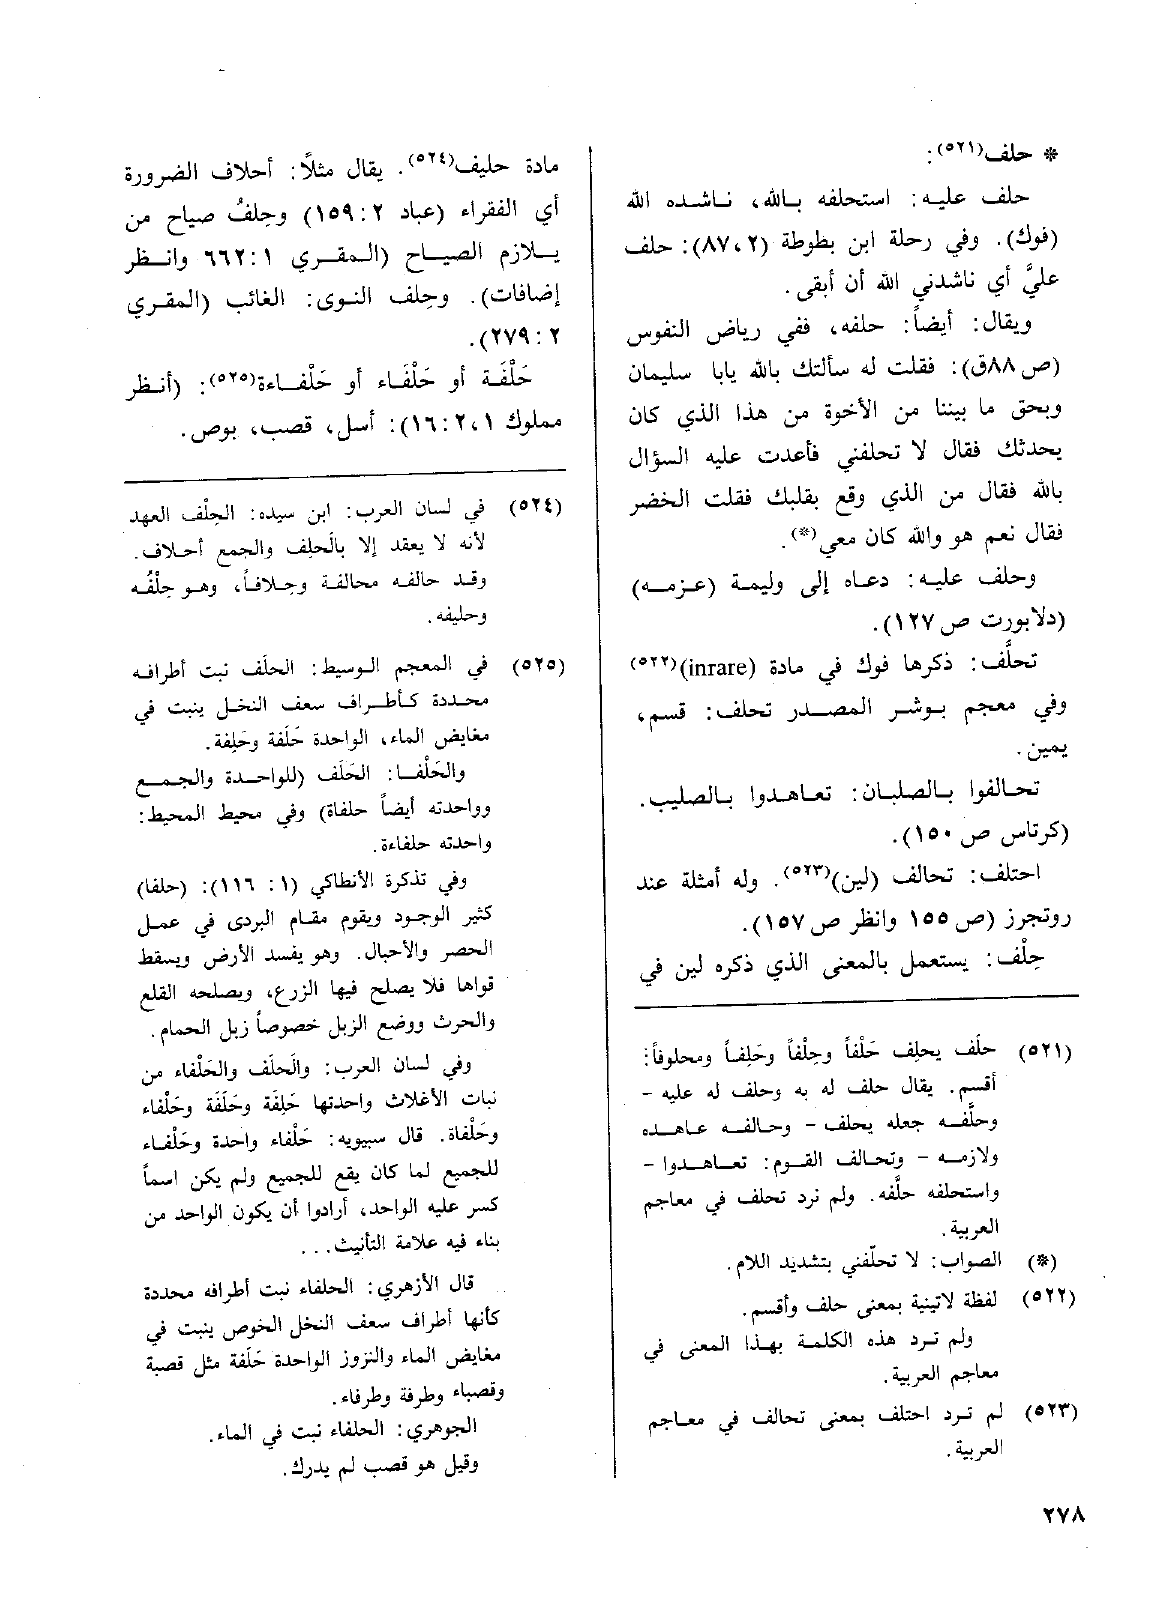 * حلف(٥٢١):
حلف عليه: استحلفه بالله، ناشده الله
(فوك). وفي رحلة ابن بطوطة (٢، ٨٧): حلف
عليَّ أي ناشدني الله أن أبقى.
ويقال: أيضاً: حلفه، ففي رياض النفوس
(ص ٨٨ق): فقلت له سألتك بالله يابا سليمان
وبحق ما بيننا من الأخوة من هذا الذي كان
يحدثك فقال لا تحلفني فأعدت عليه السؤال
بالله فقال من الذي وقع بقلبك فقلت الخضر
فقال نعم هو والله كان معي(*).
وحلف عليه: دعاه إلى وليمة (عزمه)
(دلابورت ص ١٢٧).
تحلَّف: ذكرها فوك في مادة (inrare)(٥٢٢)
وفي معجم بوشر المصدر تحلف: قسم،
يمين.
تحالفوا بالصلبان: تعاهدوا بالصليب.
(كرتاس ص ١٥٠).
احتلف: تحالف (لين)(٥٢٣). وله أمثلة عند
روتجرز (ص ١٥٥ وانظر ص ١٥٧).
حِلْف: يستعمل بالمعنى الذي ذكره لين في
(٥٢١) حلَف يحلِف حَلْفاً وحِلْفاً وحَلِفاً ومحلوفاً:
أقسم. يقال حلف له به وحلف له عليه -
وحلَّفه جعله يحلف - وحالفه عاهده
ولازمه - وتحالف القوم: تعاهدوا -
واستحلفه حلَّفه. ولم نرد تحلف في معاجم
العربية.
(*) الصواب: لا تحلّفني بتشديد اللام.
(٥٢٢) لفظة لاتينية بمعنى حلف وأقسم.
ولم ترد هذه الكلمة بهذا المعنى في
معاجم العربية.
(٥٢٣) لم ترد احتلف بمعنى تحالف في معاجم
العربية.
مادة حليف(٥٢٤). يقال مثلاً: أحلاف الضرورة
أي الفقراء (عباد ٢: ١٥٩) وحِلفُ صياح من
يلازم الصياح (المقري ١: ٦٦٢ وانظر
إضافات). وحِلف النوى: الغائب (المقري
٢: ٢٧٩).
حَلْفَة أو حَلْفَاء أو حَلْفاءة(٥٢٥): (أنظر
مملوك ١، ٢: ١٦): أسل، قصب، بوص.
(٥٢٤) في لسان العرب: ابن سيده: الحِلْف العهد
لأنه لا يعقد إلا بالَحلِف والجمع أحلاف.
وقد حالفه محالفة وحِلافاً، وهو حِلْفُه
وحليفه.
(٥٢٥) في المعجم الوسيط: الحلَف نبت أطرافه
محددة كأطراف سعف النخل ينبت في
مغايض الماء، الواحدة حَلَفة وحَلِفة.
والحَلْفا: الحَلَف (للواحدة والجمع
وواحدته أيضاً حلفاة) وفي محيط المحيط:
واحدته حلفاءة.
وفي تذكرة الأنطاكي (١: ١١٦): (حلفا)
كثير الوجود ويقوم مقام البردى في عمل
الحصر والأحبال. وهو يفسد الأرض ويسقط
قواها فلا يصلح فيها الزرع، ويصلحه القلع
والحرث ووضع الزبل خصوصاً زبل الحمام.
وفي لسان العرب: والَحلَف والحَلْفاء من
نبات الأغلاث واحدتها حَلِفَة وحَلَفَة وحَلْفاء
وحَلْفاة. قال سيبويه: حَلْفاء واحدة وحَلْفاء
للجميع لما كان يقع للجميع ولم يكن اسماً
كسر عليه الواحد، أرادوا أن يكون الواحد من
بناء فيه علامة التأنيث...
قال الأزهري: الحلفاء نبت أطرافه محددة
كأنها أطراف سعف النخل الخوص ينبت في
مغايض الماء والنزوز الواحدة حَلَفة مثل قصبة
وقصباء وطرفة وطرفاء.
الجوهري: الحلفاء نبت في الماء.
وقيل هو قصب لم يدرك.
٢٧٨